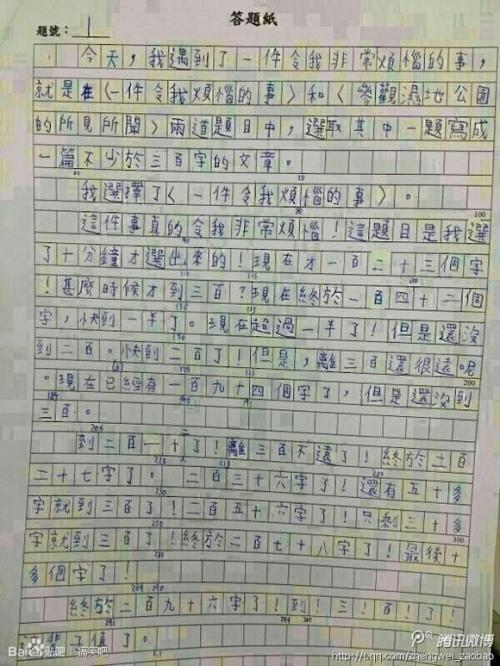 答題紙
題號：1
今天，我遇到了一件令我非常煩惱的事，
就是在〈一件令我煩惱的事〉和〈參觀濕地公園
的所見所聞〉兩道題目中，選取其中一題寫成
一篇不少於三百字的文章。
我選擇了〈一件令我煩惱的事〉。
100
這件事真的令我非常煩惱！這題目是我選
了十分鐘才選出來的！現在才一百二十三個字
！甚麼時候才到三百？現在終於一百四十二個
字，快到一半了。現在超過一半了！但是還沒
到二百。快到二百了！但是，離三百還很遠呢
200
。現在已經有一百九十四個字了，但是還沒到
三百。
到二百一十了！離三百不遠了！終於二百
二十七字了。二百三十六字了！還有五十多
字就到三百了！二百五十六字了！只剩三十多
300
字就到三百了！終於二百七十八字了！最後十
多個字了！
終於二百九十六字了！到！三！百！了！
了。
Bai 贴吧
腾讯微博
http://t.qq.com/zhengwei_zaobao